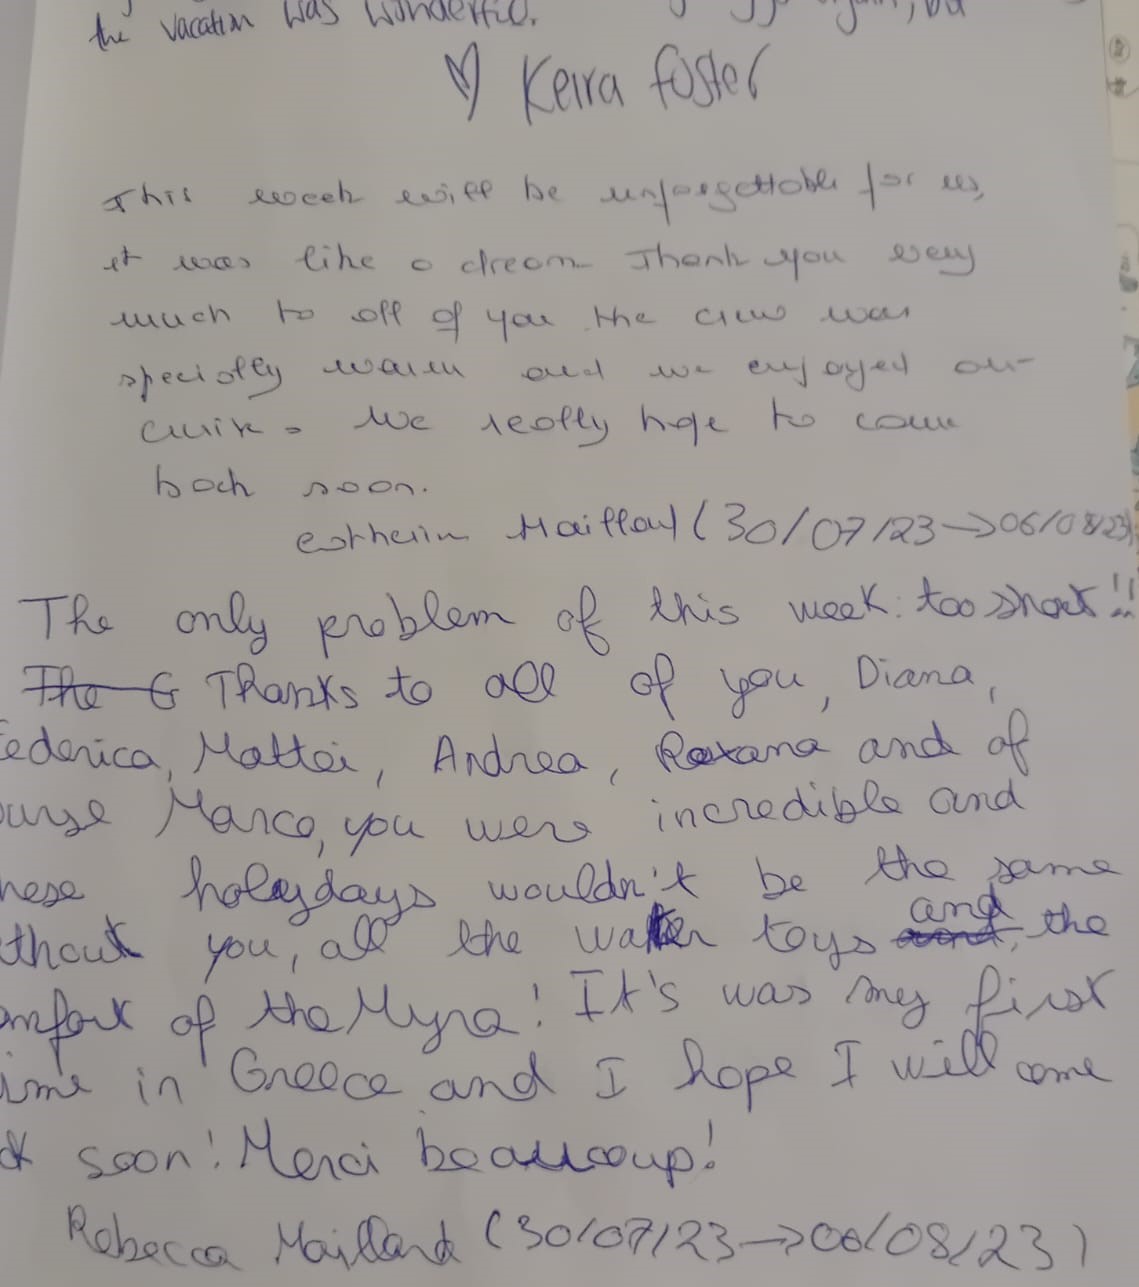 the vacation was wonderful.
♡ Keira Foster
This week will be unforgettable for us,
it was like a dream. Thank you very
much to all of you the crew was
specially warm and we enjoyed our
cruise. We really hope to come
back soon.
Maillard (30/07/23→06/08/23)
The only problem of this week: too short!!
The G Thanks to all of you, Diana,
ederica, Mattei, Andrea, Roxana and of
ourse Marco, you were incredible and
hese holeydays wouldn't be the same
thout you, all the water toys and, the
omfort of the Myra! It's was my first
ime in Greece and I hope I will come
ck soon! Merci beaucoup!
Rebecca Maillard (30/07/23→06/08/23)